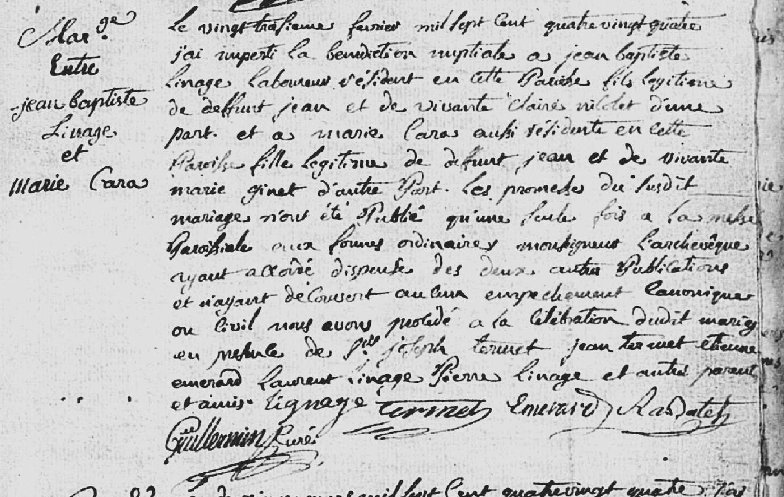 Mar.ge
Entre
jean baptiste
Linage
et
marie Cara
Le vingt troisieme fevrier mil sept Cent quatre vingt quatre
j'ai imperti la benediction nuptiale a jean baptiste
Linage Laboureur résident en cette Paroisse fils legitime
de deffunt jean et de vivante Claire nicolet d'une
part. et a marie Cara aussi résidente en cette
Paroisse fille legitime de deffunt jean et de vivante
marie ginet d'autre Part. Les promesses du susdit
mariage n'ont été Publié qu'une seule fois a La messe
Paroissiale aux formes ordinaires monseigneur L'archevêque
ayant accordé dispense des deux autres Publications
et n'ayant découvert aucun empechement Canonique
ou Civil nous avons procédé a la Célébration dudit mariage
en presence de Sr joseph termet jean termet etienne
emerard Laurent Linage Pierre Linage et autres parent
et amis. Lignage termet Emerard
Guillermin Curé
mil sept Cent quatre vingt quatre